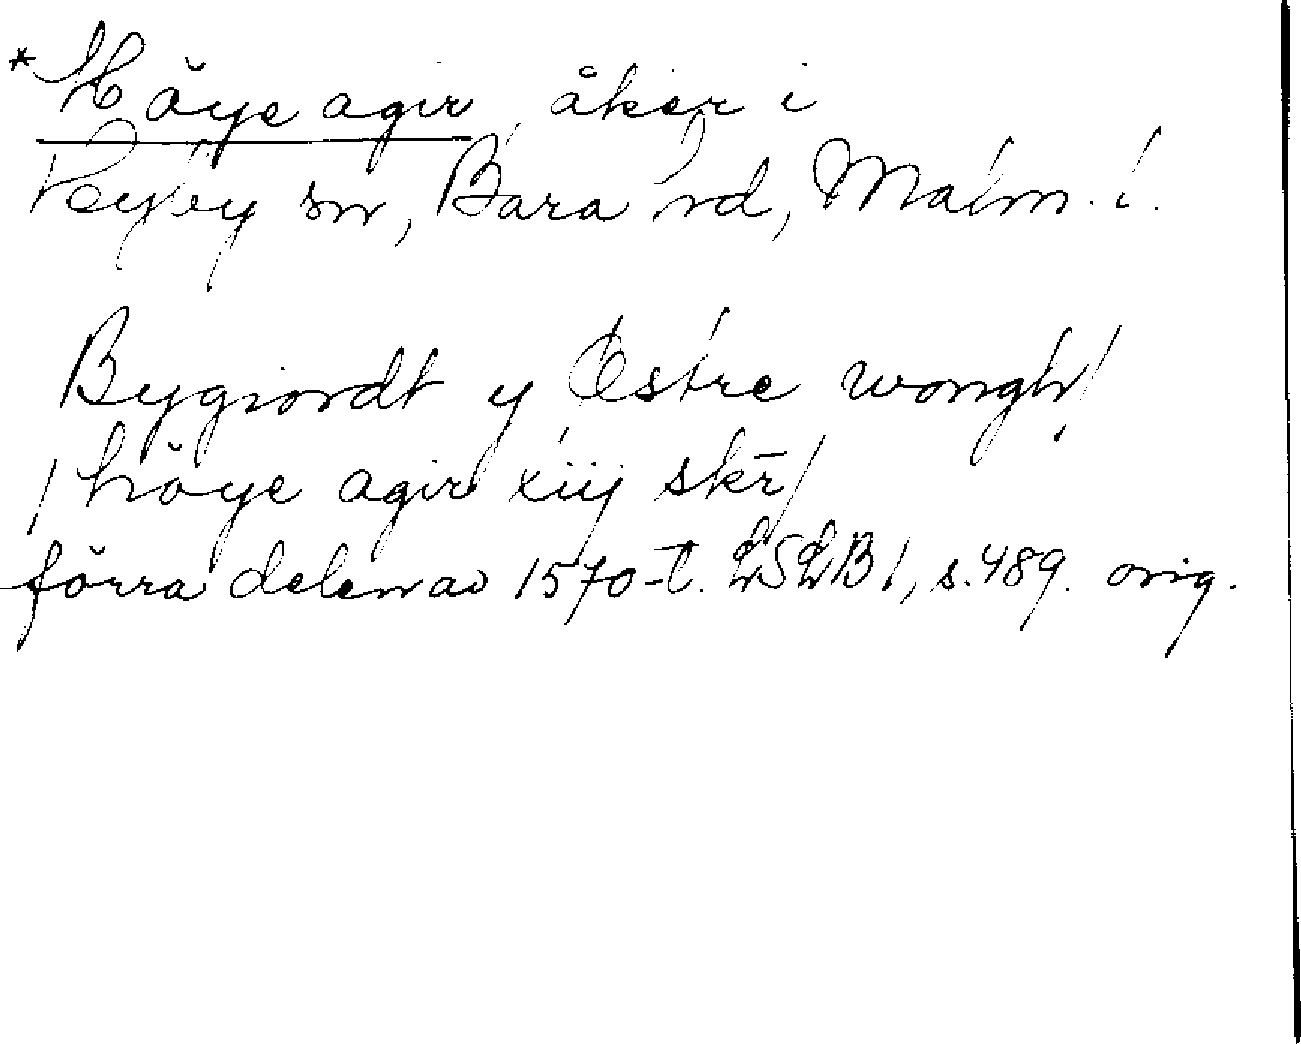 * Höye agir, åker i
Hyby sn, Bara hd, Malm. l.
Bygiordt y Östre wongh/
/ höye agir xiij skr̄/
förra delen av 1570-t. LSLB 1, s. 489. orig.